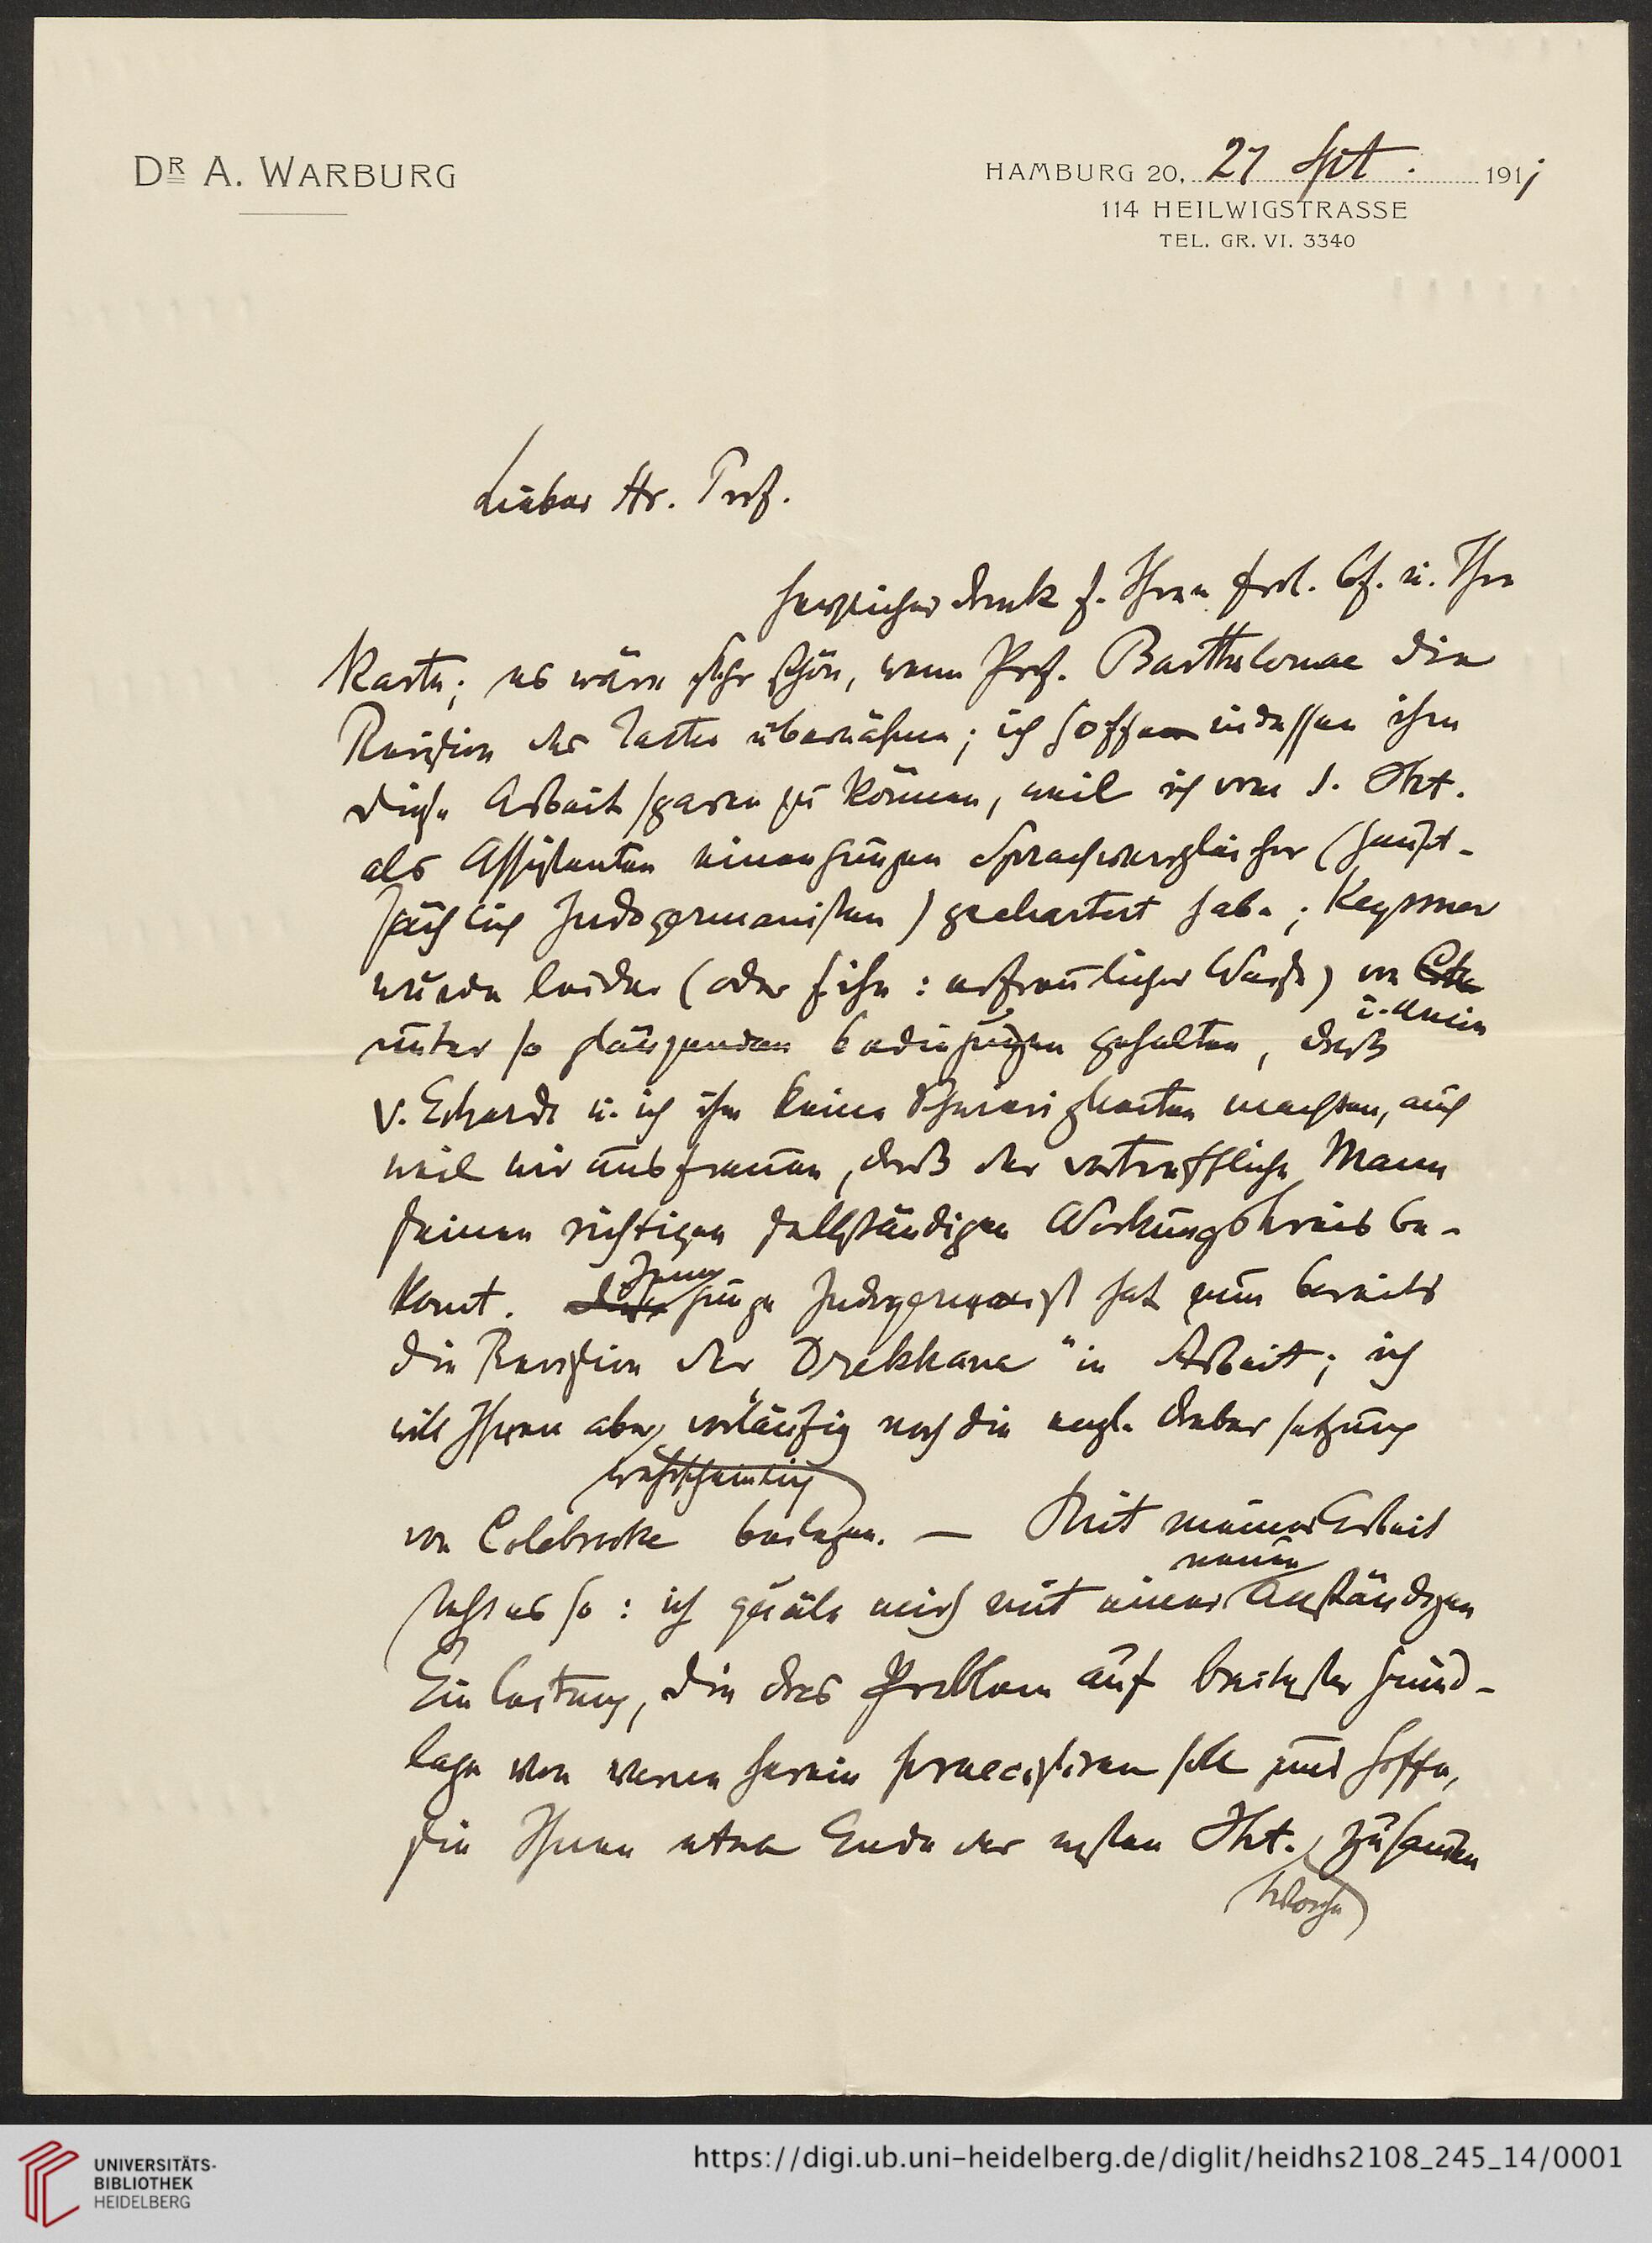 DR A. WARBURG
HAMBURG 20, 27 Spt. 1911
114 HEILWIGSTRASSE
TEL. GR. VI. 3340
Lieber Hr. Prof.
herzlichen Dank f. Ihren frdl. Bf. u. Ihre
Karte; es wäre sehr schön, wenn Prof. Bartholomae die
Revision des Textes übernähme; ich hoffe indessen ihm
diese Arbeit sparen zu können, weil ich vom 1. Okt.
als Assistenten einen jungen Sprachvergleicher (haupt-
sächlich Indogermanisten) gechartert habe; Keyssner
wurde leider (oder f. ihn: erfreulicher Weise) von
unter so glänzenden Bedingungen gehalten, daß
v. Eckardt u. ich ihm keine Schwierigkeiten machten, auch
weil wir uns freuen, daß der vortreffliche Mann
seinen richtigen selbständigen Wirkungskreis be-
komt. junge Indogermanist hat nun bereits
die Revision der Drekkana" in Arbeit; ich
will Ihnen aber vorläufig noch die engl. Uebersetzung
wahrscheinlich
von Colebrooke beilegen. — Mit meiner Arbeit
steht es so: ich quäle mich mit einer anständigen
neuen
Einleitung, die das Problem auf breitester Grund-
lage von vorn herein praecisieren soll und hoffe,
sie Ihnen etwa Ende der ersten Okt. zusenden
Woche
UNIVERSITÄTS-
BIBLIOTHEK
HEIDELBERG
https://digi.ub.uni-heidelberg.de/diglit/heidhs2108_245_14/0001